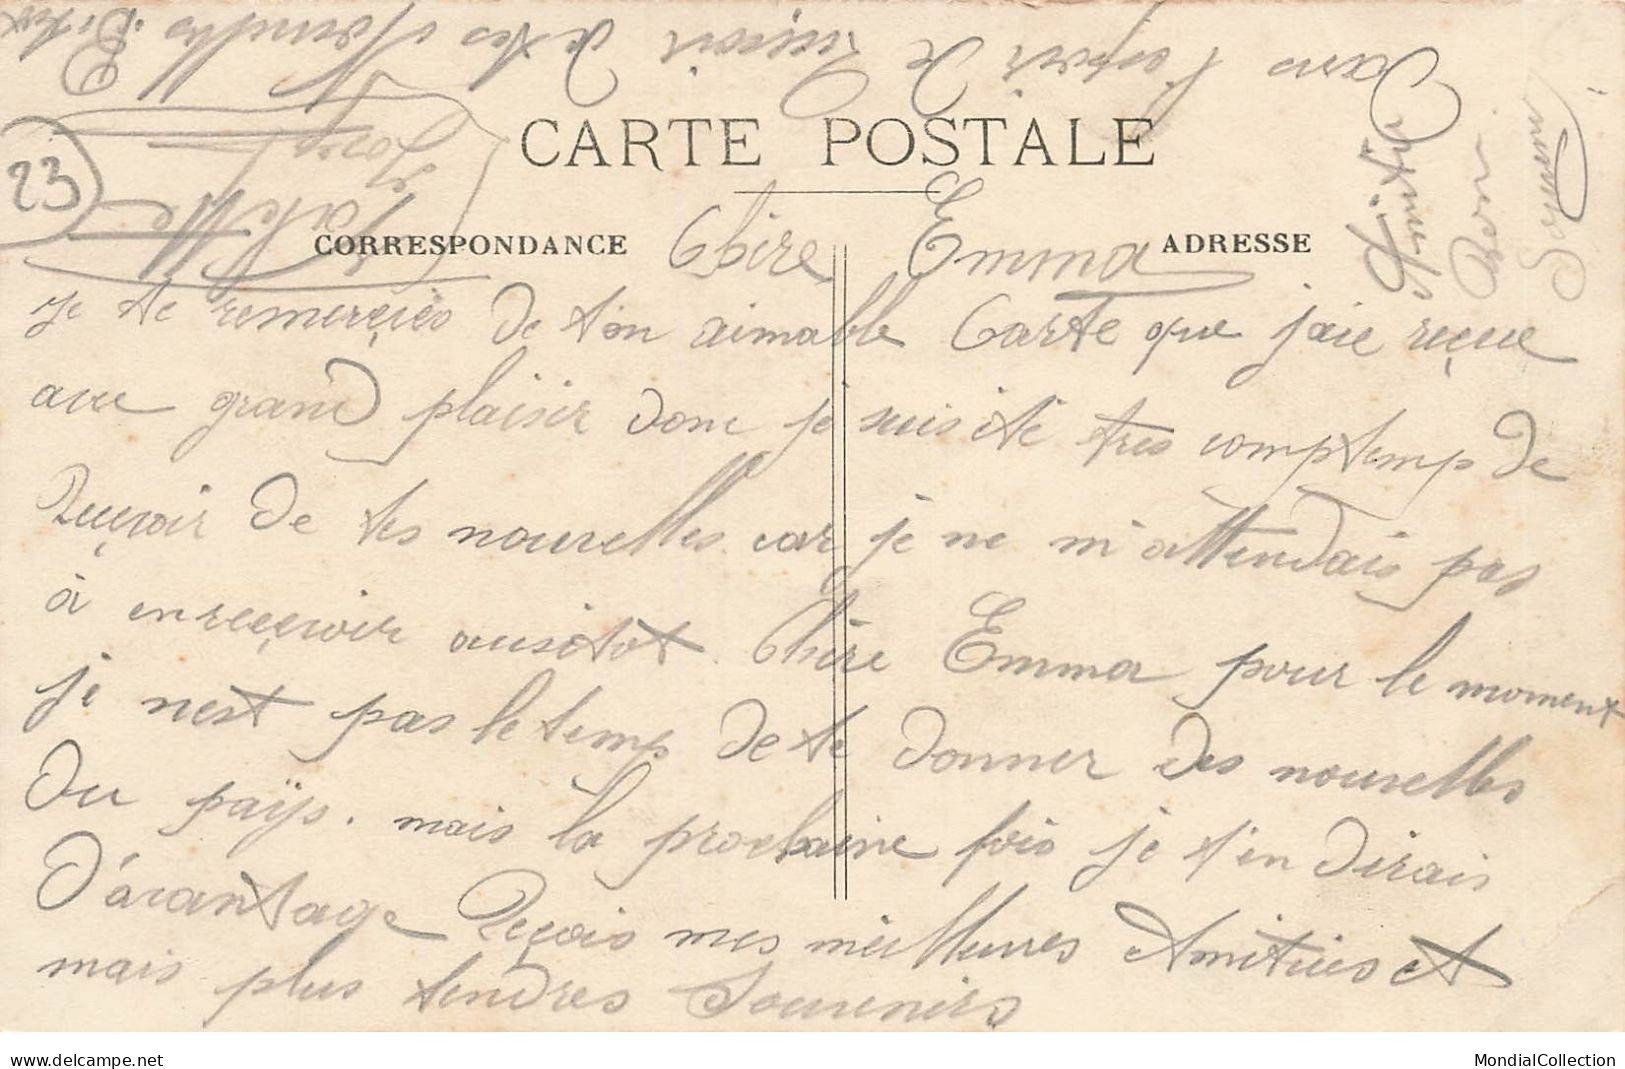 Dans l'espoir de recevoir de tes Nouvelles Bientot
CARTE POSTALE
23
CORRESPONDANCE
ADRESSE
Amitié
Bon
Souvenir
Chère Emma
je te remerçiès de ton aimable Carte que j'aie reçue
avec grand plaisir donc je suis été très comptemps de
Reçevoir de tes nouvelles car je ne m'attendais pas
à en reçevoir ausitot. Chère Emma pour le moment
je nest pas le temps de te donner des nouvelles
du païjs. mais la prochaine fois je t'en dirais
D'avantage Reçois mes meilleures Amitiés et
mais plus tendres Souvenirs
delcampe.net
MondialCollection